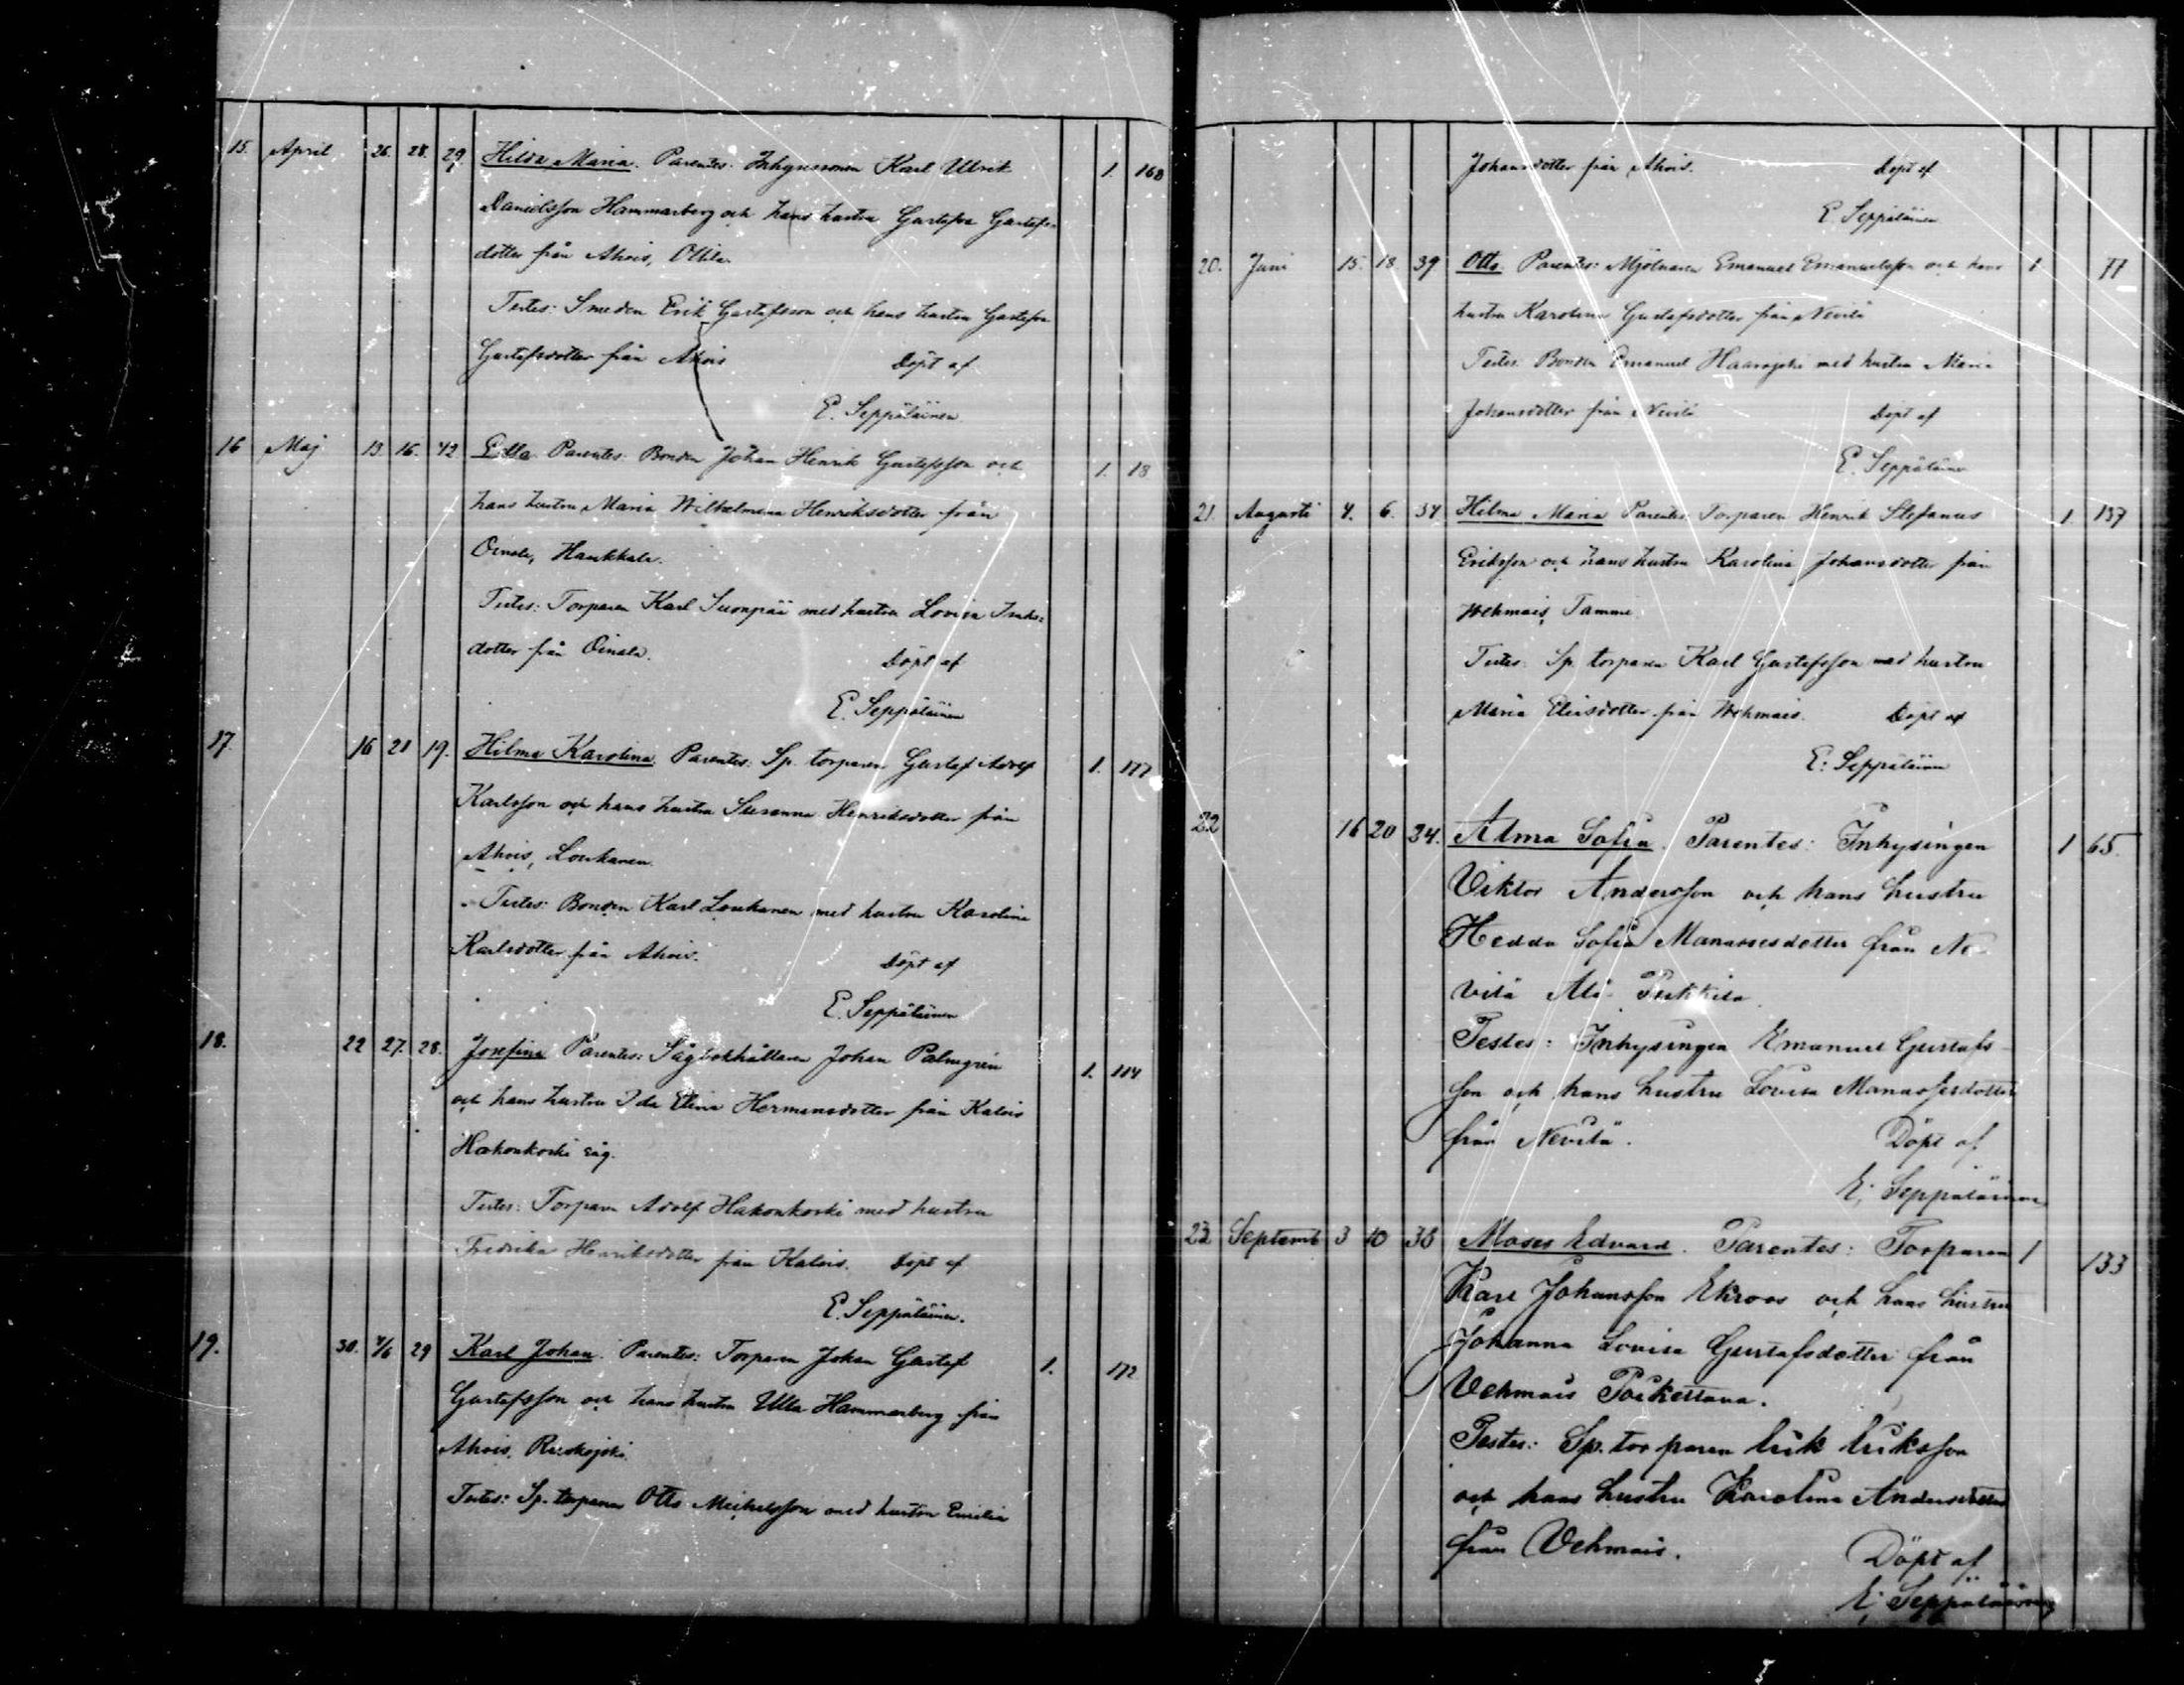 15. April 26. 28. 29. Hilda Maria. Parentes: Inhysesonen Karl Ulrik 1. 168
Danielsson Hammarberg och hans hustru Gustafva Gustafs-
dotter från Ahois, Ollila.
Testes: Smeden Erik Gustafsson och hans hustru Gustafva
Gustafsdotter från Ahois Döpt af
E. Seppäläinen
16 Maj 13. 16. 42 Edla. Parentes: Bonden Johan Henrik Gustafsson och 1. 18
hans hustru Maria Wilhelmina Henriksdotter från
Oinala, Haukkala.
Testes: Torparen Karl Suonpää med hustru Lovisa Isaks-
dotter från Oinala. Döpt af
E. Seppäläinen
17. 16 21 19. Hilma Karolina. Parentes: Sp. torparen Gustaf Adolf 1. 177
Karlsson och hans hustru Susanna Henriksdotter från
Ahois, Loukanen.
Testes: Bonden Karl Loukanen med hustru Karolina
Karlsdotter från Ahois. Döpt af
E. Seppäläinen
18. 22 27. 28. Josefina Parentes: Sågbokhållaren Johan Palmgrén 1. 114
och hans hustru Ida Elina Hermansdotter från Kalois
Hakonkoski såg.
Testes: Torparen Adolf Hakonkoski med hustru
Fredrika Henriksdotter från Kalois. Döpt af
E. Seppäläinen.
19. 30. 4/6 29 Karl Johan. Parentes: Torparen Johan Gustaf 1. 172
Gustafsson och hans hustru Ulla Hammarberg från
Ahois, Ruskojoki.
Testes: Sp. torparen Otto Michelsson med hustru Emilia
Johansdotter från Ahois. Döpt af
E. Seppäläinen
20. Juni 15. 18 39 Otto. Parentes: Mjölnaren Emanuel Emanuelsson och hans 1 77
hustru Karolina Gustafsdotter från Nevilä
Testes: Bonden Emanuel Haarajoki med hustru Maria
Johansdotter från Nevilä Döpt af
E. Seppäläinen
21. Augusti 4. 6. 34 Hilma Maria Parentes: Torparen Henrik Stefanus 1. 137
Eriksson och hans hustru Karolina Johansdotter från
Wehmais, Tammi.
Testes: Sp. torparen Karl Gustafsson med hustru
Maria Eliasdotter från Wehmais. Döpt af
E. Seppäläinen
22 16 20 34. Alma Sofia. Parentes: Inhysingen 1 65.
Viktor Andersson och hans hustru
Hedda Sofia Manassesdotter från Ne-
vilä Ala-Perkkilä.
Testes: Inhysingen Emanuel Gustafs-
son och hans hustru Lovisa Manassesdotter
från Nevilä. Döpt af
E. Seppäläinen
23 Septemb 3 10 38 Moses Edvard. Parentes: Torparen 1 133
Karl Johansson Ekroos och hans hustru
Johanna Lovisa Gustafsdotter från
Vehmais
Testes: Sp. torparen Erik Eriksson
och hans hustru Karolina Andersdotter
från Vehmais. Döpt af
E. Seppäläinen